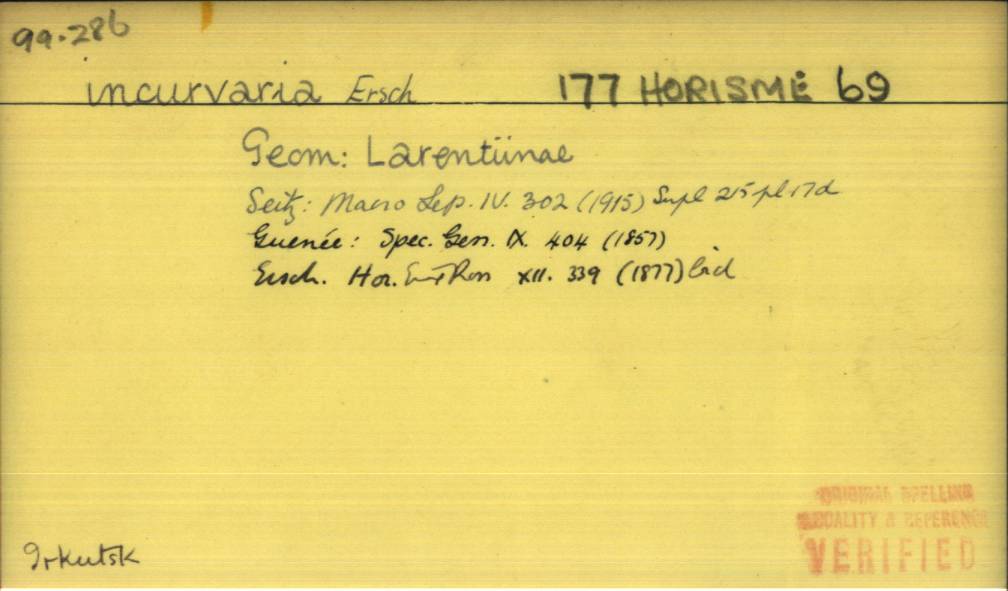 99.286
incurvaria Ersch 177 HORISME 69
Geom: Larentiinae
Seitz: Macro Lep. IV. 302 (1915) Supl 215 pl 17d
Guenée: Spec. Gen. IX. 404 (1857)
Ersch. Hor. Ent Ross XII. 339 (1877)
Irkutsk
ORIGINAL SPELLING
LOCALITY & REFERENCE
VERIFIED